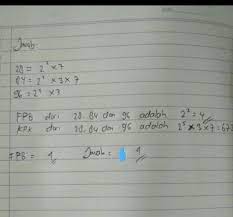 Jawab:
28 = 2² × 7
84 = 2² × 3 × 7
96 = 2⁵ × 3
FPB dari 28, 84 dan 96 adalah 2² = 4
KPK dari 28, 84 dan 96 adalah 2⁵ × 3 × 7 = 672
FPB = 4 Jawab = 4